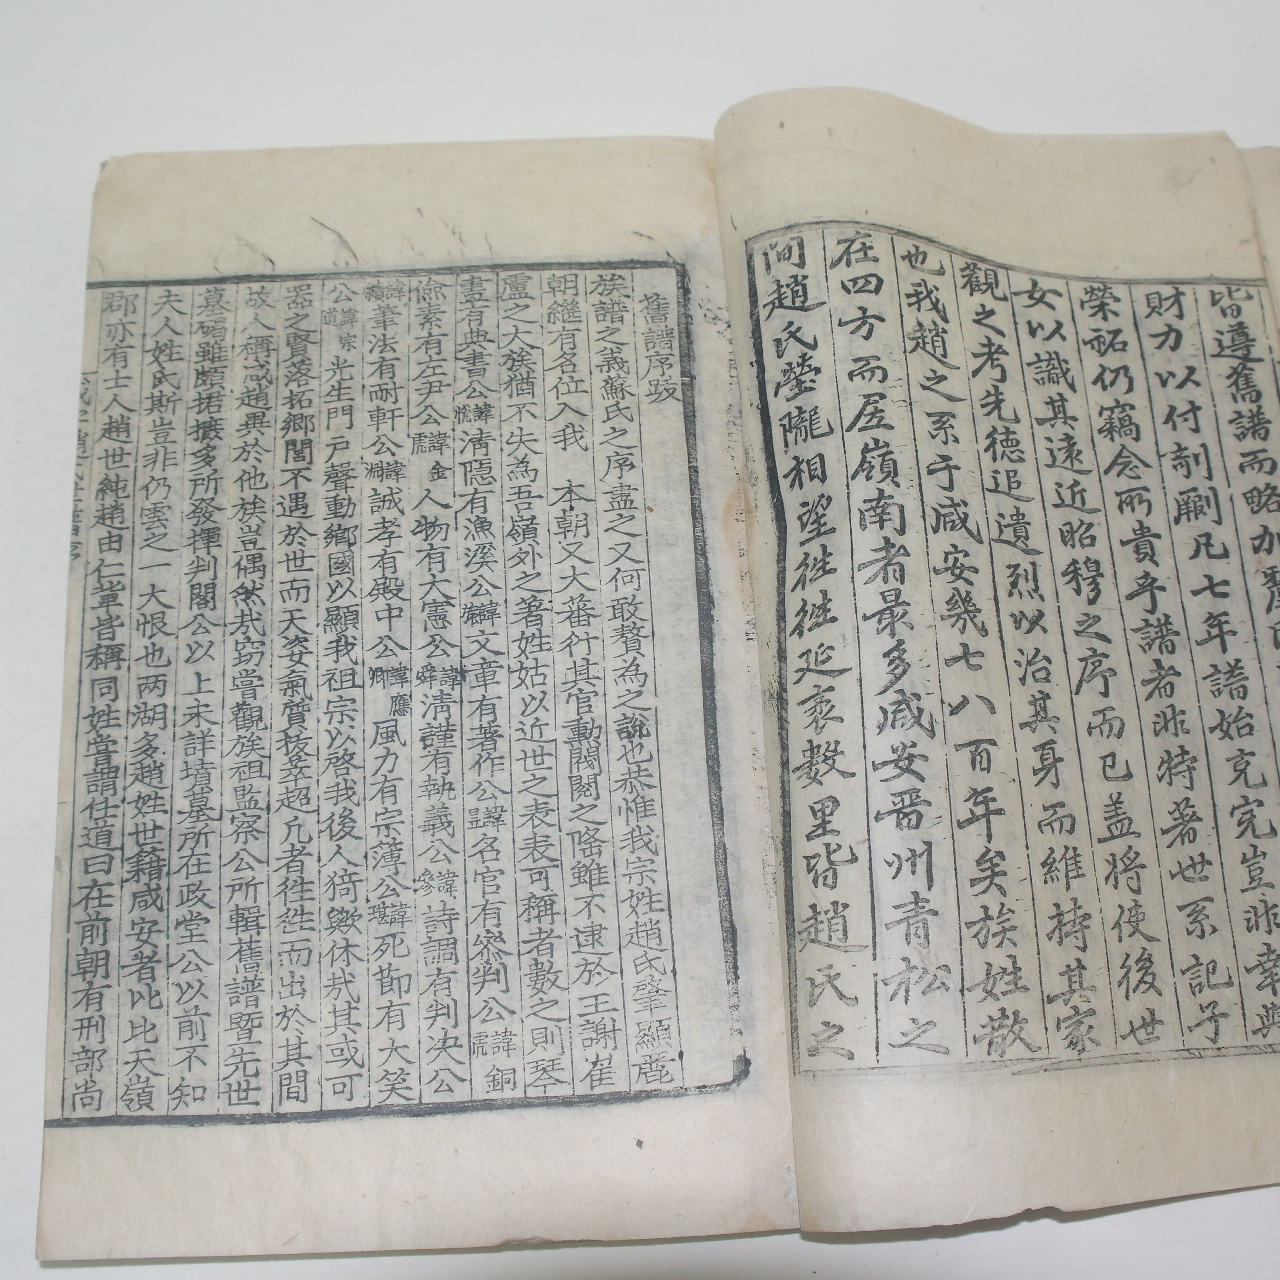 皆遵舊譜而略加
財力以付剞劂凡七年譜始克完豈非幸與
榮祏仍竊念所貴乎譜者非特著世系記子
女以識其遠近昭穆之序而已盖將使後世
觀之考先德追遺烈以治其身而維持其家
也我趙之系于咸安幾七八百年矣族姓散
在四方而居嶺南者最多咸安晋州青松之
間趙氏瑩隴相望徃徃延袤數里皆趙氏之
舊譜序跋
族譜之義蘇氏之序盡之又何敢贅為之說也恭惟我宗姓趙氏肇顯麗
朝繼有名位入我 本朝又大蕃衍其官勳閥閱之隆雖不逮於王謝崔
盧之大族猶不失為吾嶺外之著姓姑以近世之表表可稱者數之則琴
書有典書公諱清隱有漁溪公諱文章有著作公諱名官有叅判公諱虎銅
儉素有左尹公諱金虎人物有大憲公諱舜清謹有執義公諱參詩調有判决公
諱績筆法有耐軒公諱淵誠孝有殿中公諱應卿風力有宗簿公諱琪死節有大笑
公諱宗道光生門戶聲動鄉國以顯我祖宗以啓我後人猗歟休㢤其或可
器之賢落拓鄉閭不遇於世而天姿氣質拔萃超凡者徃徃而出於其間
故人稱咸趙異於他族豈偶然㢤窃嘗觀族祖監察公所輯舊譜曁先世
墓碣雖頗捃摭多所發揮判閣公以上未詳墳墓所在政堂公以前不知
夫人姓氏斯豈非仍雲之一大恨也两湖多趙姓世籍咸安者比比天嶺
郡亦有士人趙世純趙由仁輩皆稱同姓嘗謂任道曰在前朝有刑部尚